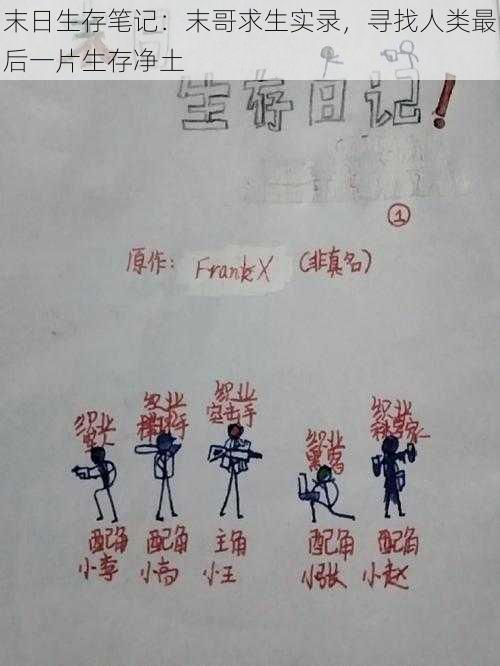 末日生存笔记：末哥求生实录，寻找人类最
后一片生存净土
生存日记！
①
原作：FrankX（非真名）
职业 职业 职业 职业 职业
突击手
配角 配角 主角 配角 配角
小李 小高 小王 小张 小赵